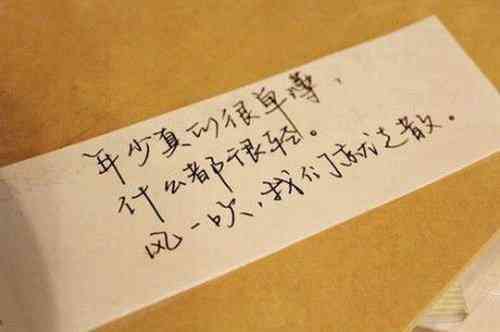 年少真的很单薄，
什么都很轻。
风一吹，我们就走散。